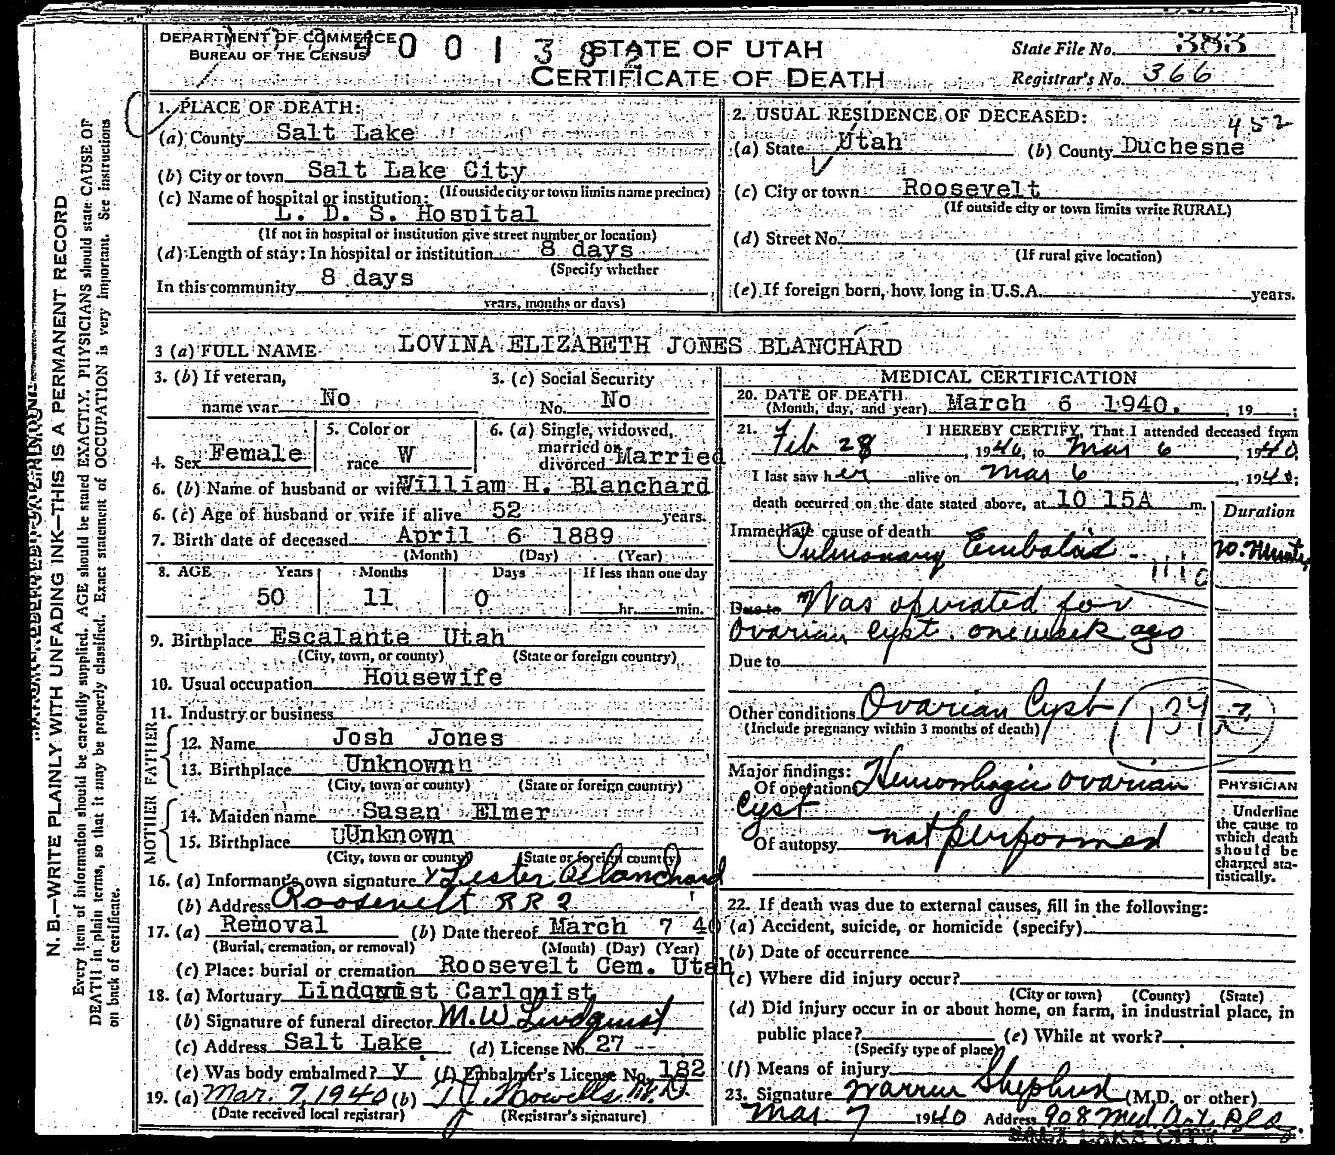 DEPARTMENT OF COMMERCE
BUREAU OF THE CENSUS
0 0 1 3 8 2
STATE OF UTAH
CERTIFICATE OF DEATH
State File No. 383
Registrar's No. 366
1. PLACE OF DEATH:
(a) County Salt Lake
(b) City or town Salt Lake City
(If outside city or town limits name precinct)
(c) Name of hospital or institution:
L. D. S. Hospital
(If not in hospital or institution give street number or location)
(d) Length of stay: In hospital or institution 8 days
(Specify whether
In this community 8 days
years, months or days)
2. USUAL RESIDENCE OF DECEASED:
452
(a) State Utah (b) County Duchesne
(c) City or town Roosevelt
(If outside city or town limits write RURAL)
(d) Street No.
(If rural give location)
(e) If foreign born, how long in U.S.A. years.
3 (a) FULL NAME LOVINA ELIZABETH JONES BLANCHARD
3. (b) If veteran,
name war No
3. (c) Social Security
No. No
4. Sex Female
5. Color or
race W
6. (a) Single, widowed,
married or
divorced Married
6. (b) Name of husband or wife William H. Blanchard
6. (c) Age of husband or wife if alive 52 years.
7. Birth date of deceased April 6 1889
(Month) (Day) (Year)
8. AGE Years Months Days If less than one day
50 11 0 hr. min.
9. Birthplace Escalante Utah
(City, town, or county) (State or foreign country)
10. Usual occupation Housewife
11. Industry or business
FATHER
12. Name Josh Jones
13. Birthplace Unknown
(City, town or county) (State or foreign country)
MOTHER
14. Maiden name Susan Elmer
15. Birthplace UUnknown
(City, town or county) (State or foreign country)
16. (a) Informant's own signature x Lester Blanchard
(b) Address Roosevelt RR 2
17. (a) Removal (b) Date thereof March 7 40
(Burial, cremation, or removal) (Month) (Day) (Year)
(c) Place: burial or cremation Roosevelt Cem. Utah
18. (a) Mortuary Lindquist Carlqnist
(b) Signature of funeral director M.W Lindquist
(c) Address Salt Lake (d) License No. 27 --
(e) Was body embalmed? y (f) Embalmer's License No. 182
19. (a) Mar. 7, 1940 (b) Howells M.D.
(Date received local registrar) (Registrar's signature)
MEDICAL CERTIFICATION
20. DATE OF DEATH
(Month, day, and year) March 6 1940. , 19 ;
21. I HEREBY CERTIFY, That I attended deceased from
Feb 28, 1940, to Mar 6, 1940
I last saw her alive on Mar 6, 1940;
death occurred on the date stated above, at 10 15A m.
Duration
Immediate cause of death
Pulmonary Embolus - 10 Minutes
111c
Due to Was operated for
Ovarian Cyst. one week ago
Due to
Other conditions Ovarian Cyst
(Include pregnancy within 3 months of death)
Major findings:
Of operations Hemorrhagic ovarian
Cyst
Of autopsy not performed
PHYSICIAN
Underline
the cause to
which death
should be
charged sta-
tistically.
22. If death was due to external causes, fill in the following:
(a) Accident, suicide, or homicide (specify)
(b) Date of occurrence
(c) Where did injury occur?
(City or town) (County) (State)
(d) Did injury occur in or about home, on farm, in industrial place, in
public place? (e) While at work?
(Specify type of place)
(f) Means of injury
23. Signature Warren Shepherd (M.D. or other)
Mar 7 1940 Address 908 Med. Art. Bldg.
SALT LAKE CITY
N. B.—WRITE PLAINLY WITH UNFADING INK—THIS IS A PERMANENT RECORD
Every item of information should be carefully supplied. AGE should be stated EXACTLY. PHYSICIANS should state CAUSE OF
DEATH in plain terms, so that it may be properly classified. Exact statement of OCCUPATION is very important. See instructions
on back of certificate.